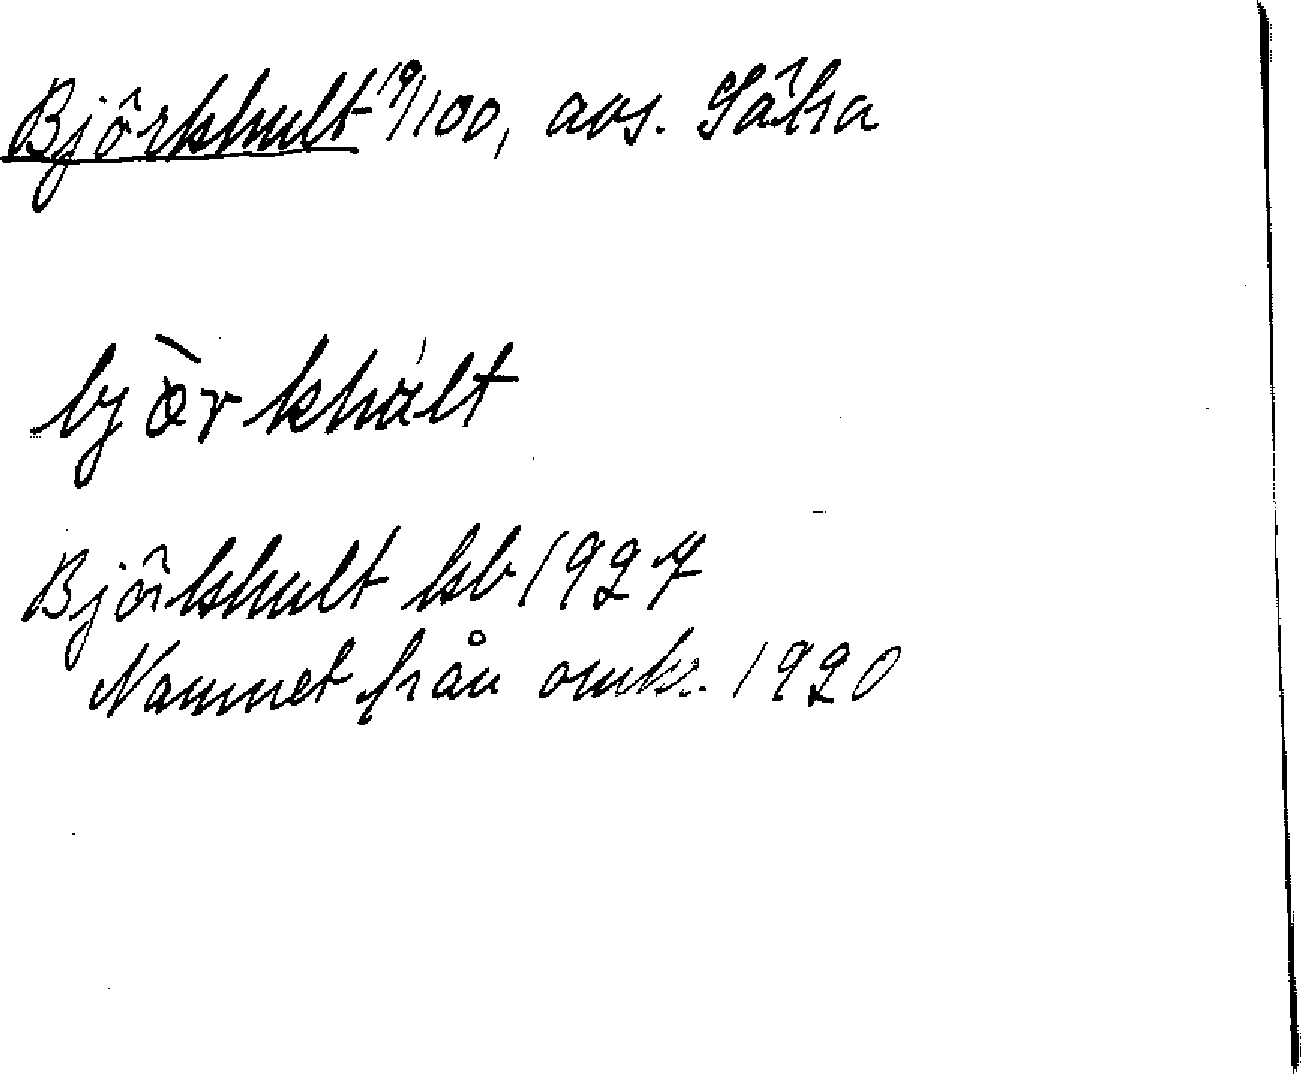 Björkhult 19/100, avs. Sätra
björkhult
Björkhult kb 1927
Namnet från omkr. 1920